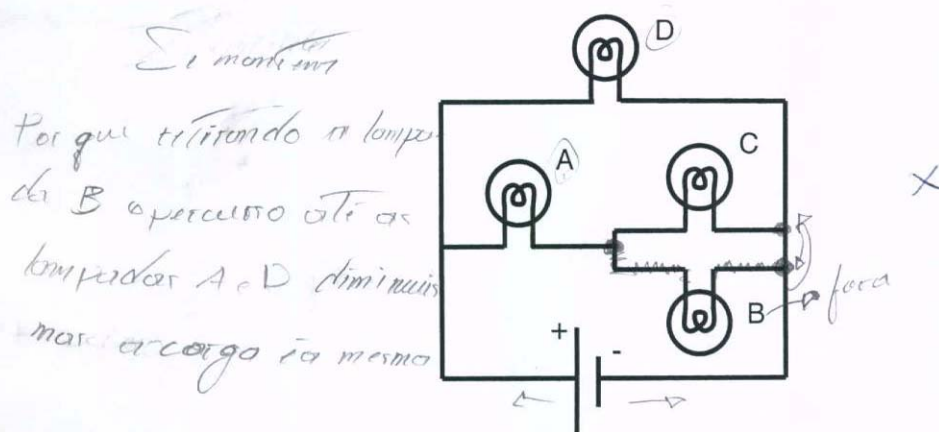 Por que retirando a lampa-
da B o percurso até as
lampadas A e D diminuis
mas a carga é a mesma
D
A
C
B
fora
+
-